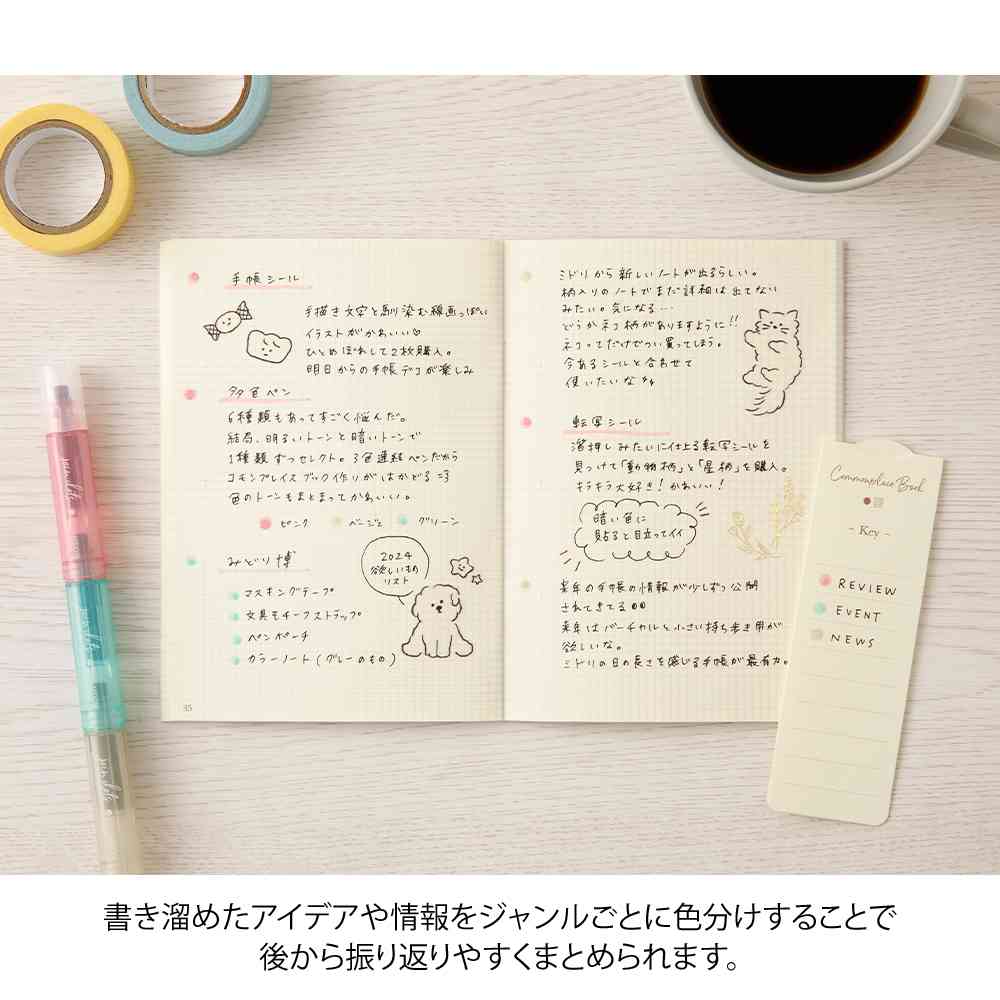 手帳シール
手描き文字と馴染む線画っぽい
イラストがかわいい♡
ひとめぼれして2枚購入。
明日からの手帳デコが楽しみ
多色ペン
6種類もあってすごく悩んだ。
結局、明るいトーンと暗いトーンで
1種類ずつセレクト。3色連結ペンだから
コモンプレイスブック作りがはかどる
色のトーンもまとまってかわいい。
ピンク ベージュ グリーン
みどり博
2024
欲しいもの
リスト
マスキングテープ
文具モチーフストラップ
ペンポーチ
カラーノート(グレーのもの)
35
ミドリから新しいノートが出るらしい。
柄入りのノートでまだ詳細は出てない
みたい。気になる…
どうかネコ柄がありますように!!
ネコってだけでつい買ってしまう。
今あるシールと合わせて
使いたいな
転写シール
箔押しみたいに仕上る転写シールを
見つけて「動物柄」と「星柄」を購入。
キラキラ大好き!かわいい!
暗い色に
貼ると目立ってイイ
来年の手帳の情報が少しずつ公開
されてきてる
来年はバーチカルと小さい持ち歩き用が
欲しいな。
ミドリの日の長さを感じる手帳が最有力。
Commonplace Book
- Key -
REVIEW
EVENT
NEWS
書き溜めたアイデアや情報をジャンルごとに色分けすることで
後から振り返りやすくまとめられます。